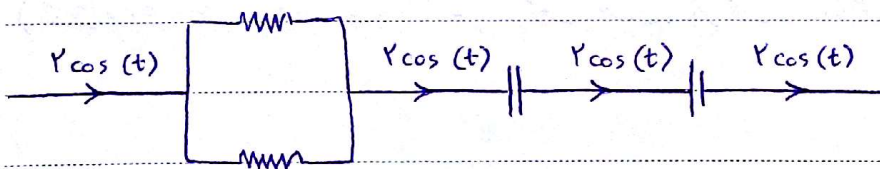 ۲cos (t) ۲cos (t) ۲cos (t) ۲cos (t)